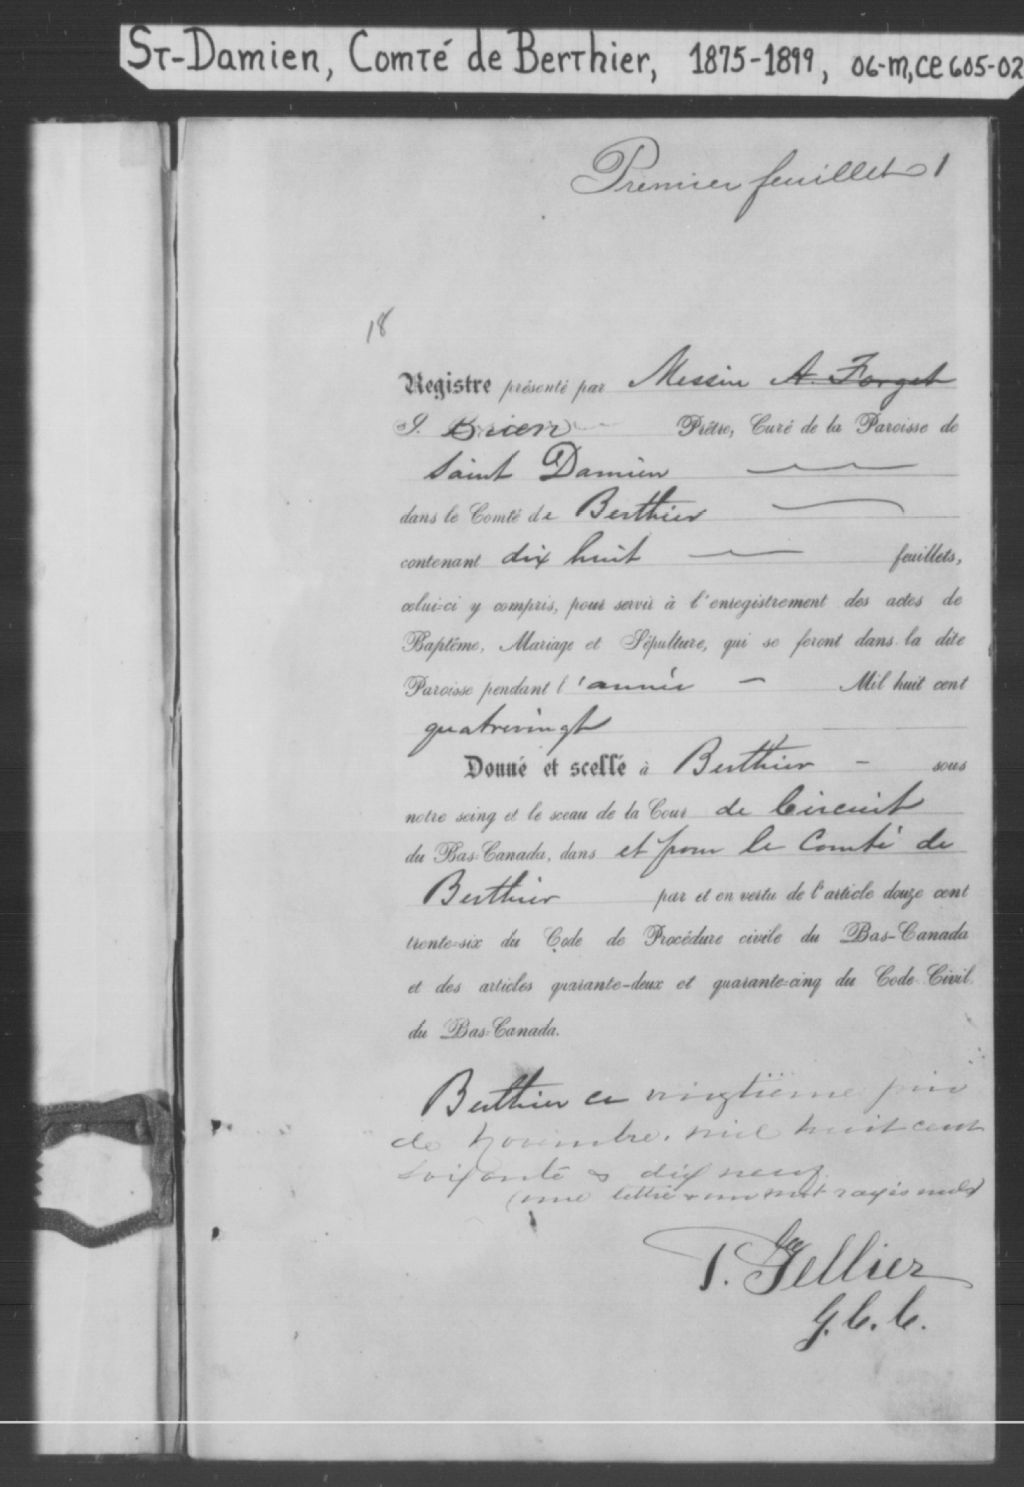 ST-Damien, Comté de Berthier, 1875-1899, 06-M, CE605-02
Premier feuillet 1
18
Registre présenté par Messire A. Forget
J. Brien Prêtre, Curé de la Paroisse de
Saint Damien
dans le Comté de Berthier
contenant dix huit feuillets,
celui-ci y compris, pour servir à l'enregistrement des actes de
Baptême, Mariage et Sépulture, qui se feront dans la dite
Paroisse pendant l'année - Mil huit cent
quatrevingt
Donné et scellé à Berthier - sous
notre seing et le sceau de la Cour de Circuit
du Bas-Canada, dans et pour le Comté de
Berthier par et en vertu de l'article douze cent
trente-six du Code de Procédure civile du Bas-Canada
et des articles quarante-deux et quarante-cinq du Code Civil
du Bas-Canada.
Berthier ce vingtième jour
de Novembre, mil huit cent
soixante & dix neuf.
(une lettre & un mot rayés nuls)
P. Tellier
G. C. C.